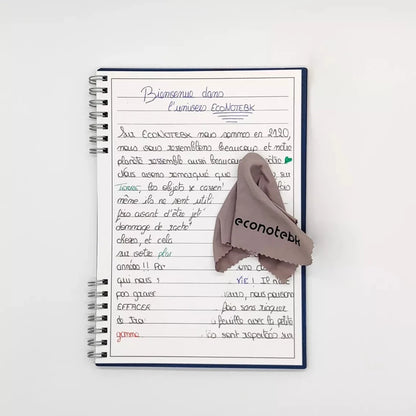 Bienvenue dans
l'univers ECONOTEBK
Sur ECONOTEBK nous sommes en 2120,
nous vous ressemblons beaucoup et notre
planète ressemble aussi beaucoup
Nous avons remarqué que
Terre, les objets se cassent fois
même ils ne sont
fois avant d'être jeté
dommage de
choses, et cela
sur votre plus
années!! Par
qui nous VIE! Il n'est
pas grave nous pouvons
EFFACER fois sans risquer
de feuille avec la petite
gamme sont repertoriés sur
econotebk